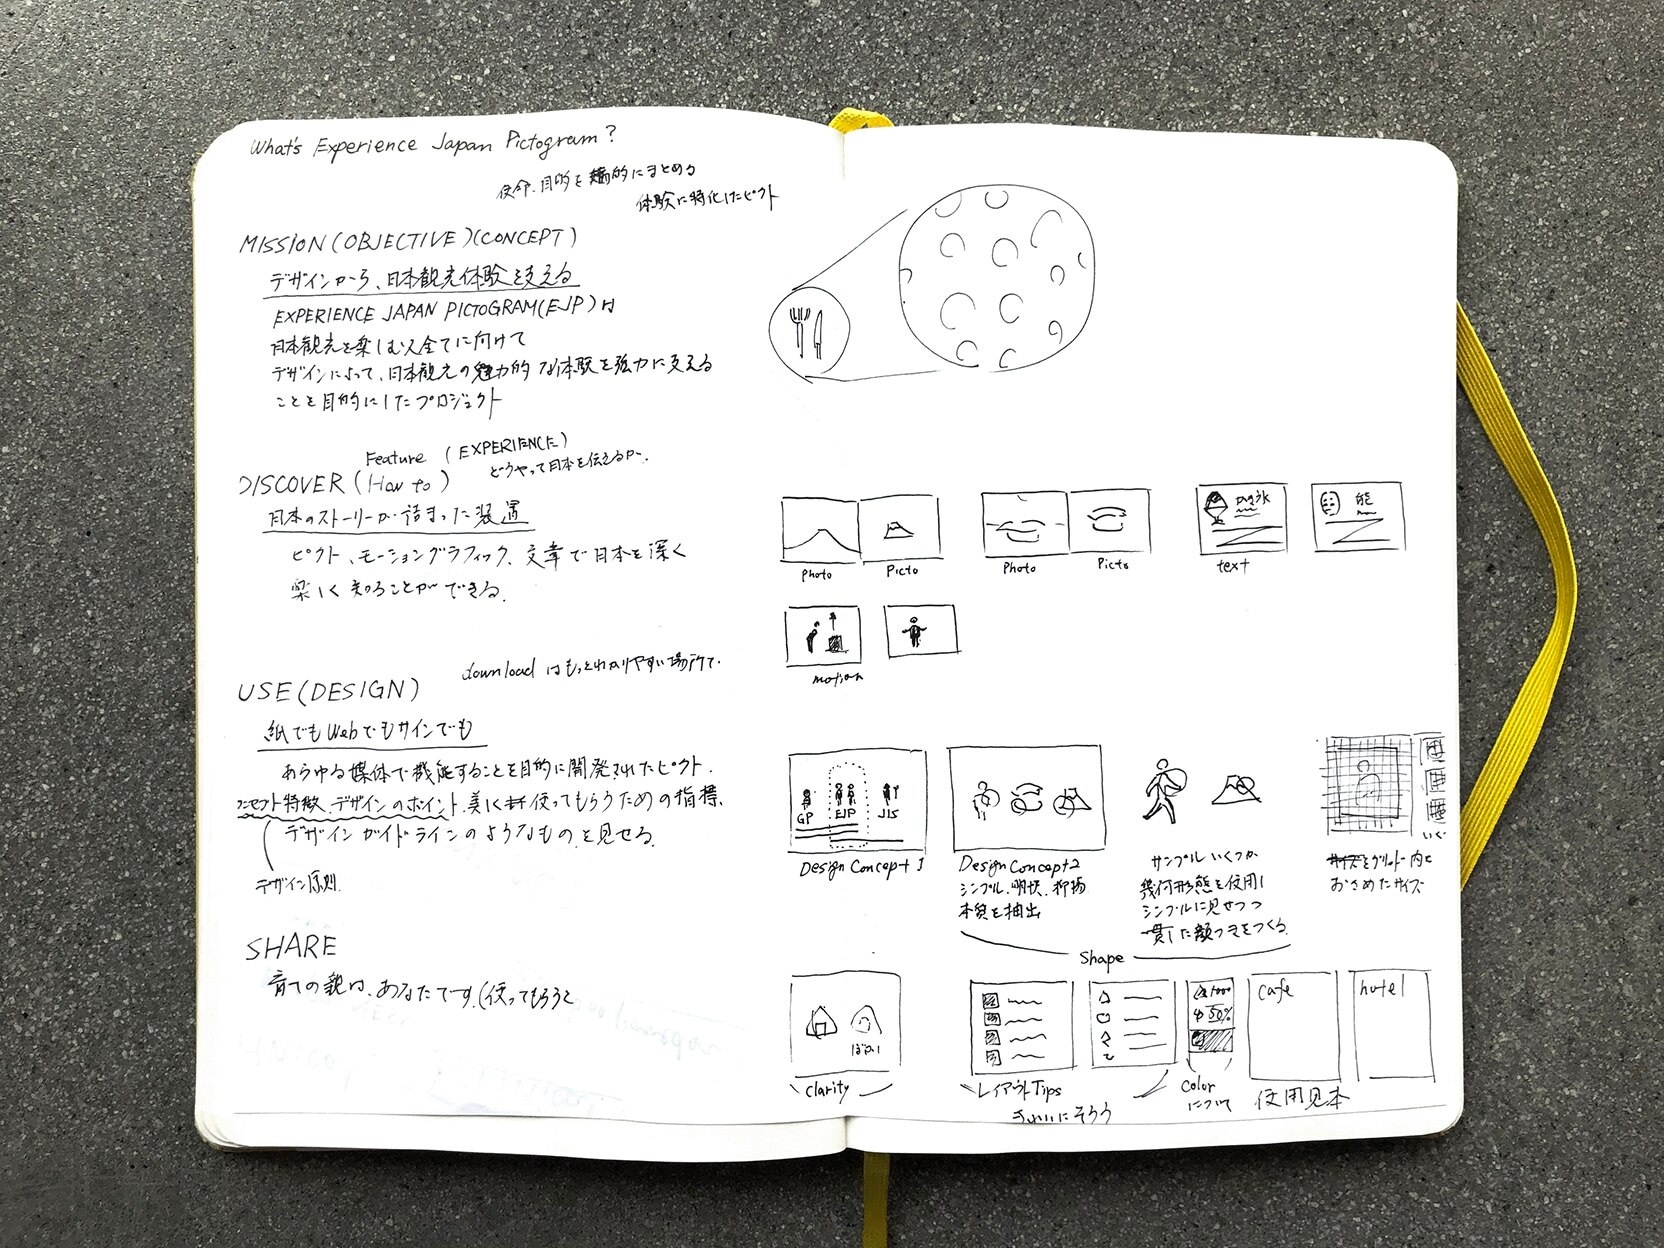 What's Experience Japan Pictogram?
使命、目的を 的にまとめる
体験に特化したピクト
MISSION(OBJECTIVE)(CONCEPT)
デザインから、日本観光体験を支える
EXPERIENCE JAPAN PICTOGRAM(EJP)は
日本観光を楽しむ人全てに向けて
デザインによって、日本観光の魅力的な体験を強力に支える
ことを目的にしたプロジェクト
Feature (EXPERIENCEに)
どうやって日本を伝えるか.
DISCOVER(How to)
日本のストーリーが詰まった装置
ピクト、モーショングラフィック、文章で日本を深く
楽しく知ることができる.
download はもっとわかりやすい場所で.
USE(DESIGN)
紙でもWebでもサインでも
あらゆる媒体で機能することを目的に開発されたピクト.
コンセプト特徴、デザインのポイント、美しく使ってもらうための指標、
デザインガイドラインのようなものを見せる.
デザイン原則.
SHARE
育ての親は、あなたです.(使ってもらうと
Photo Picto Photo Picto text
能
motion
GP EJP JIS
Design Concept 1
Design Concept2
シンプル、明快、
本質を抽出
サンプルいくつか
幾何形態を使用し
シンプルに見せつつ
一貫した顔つきをつくる
グリッド内に
おさめたサイズ
Shape
clarity
レイアウトTips
きれいにそろう
50%
Color
について
cafe
hotel
使用見本